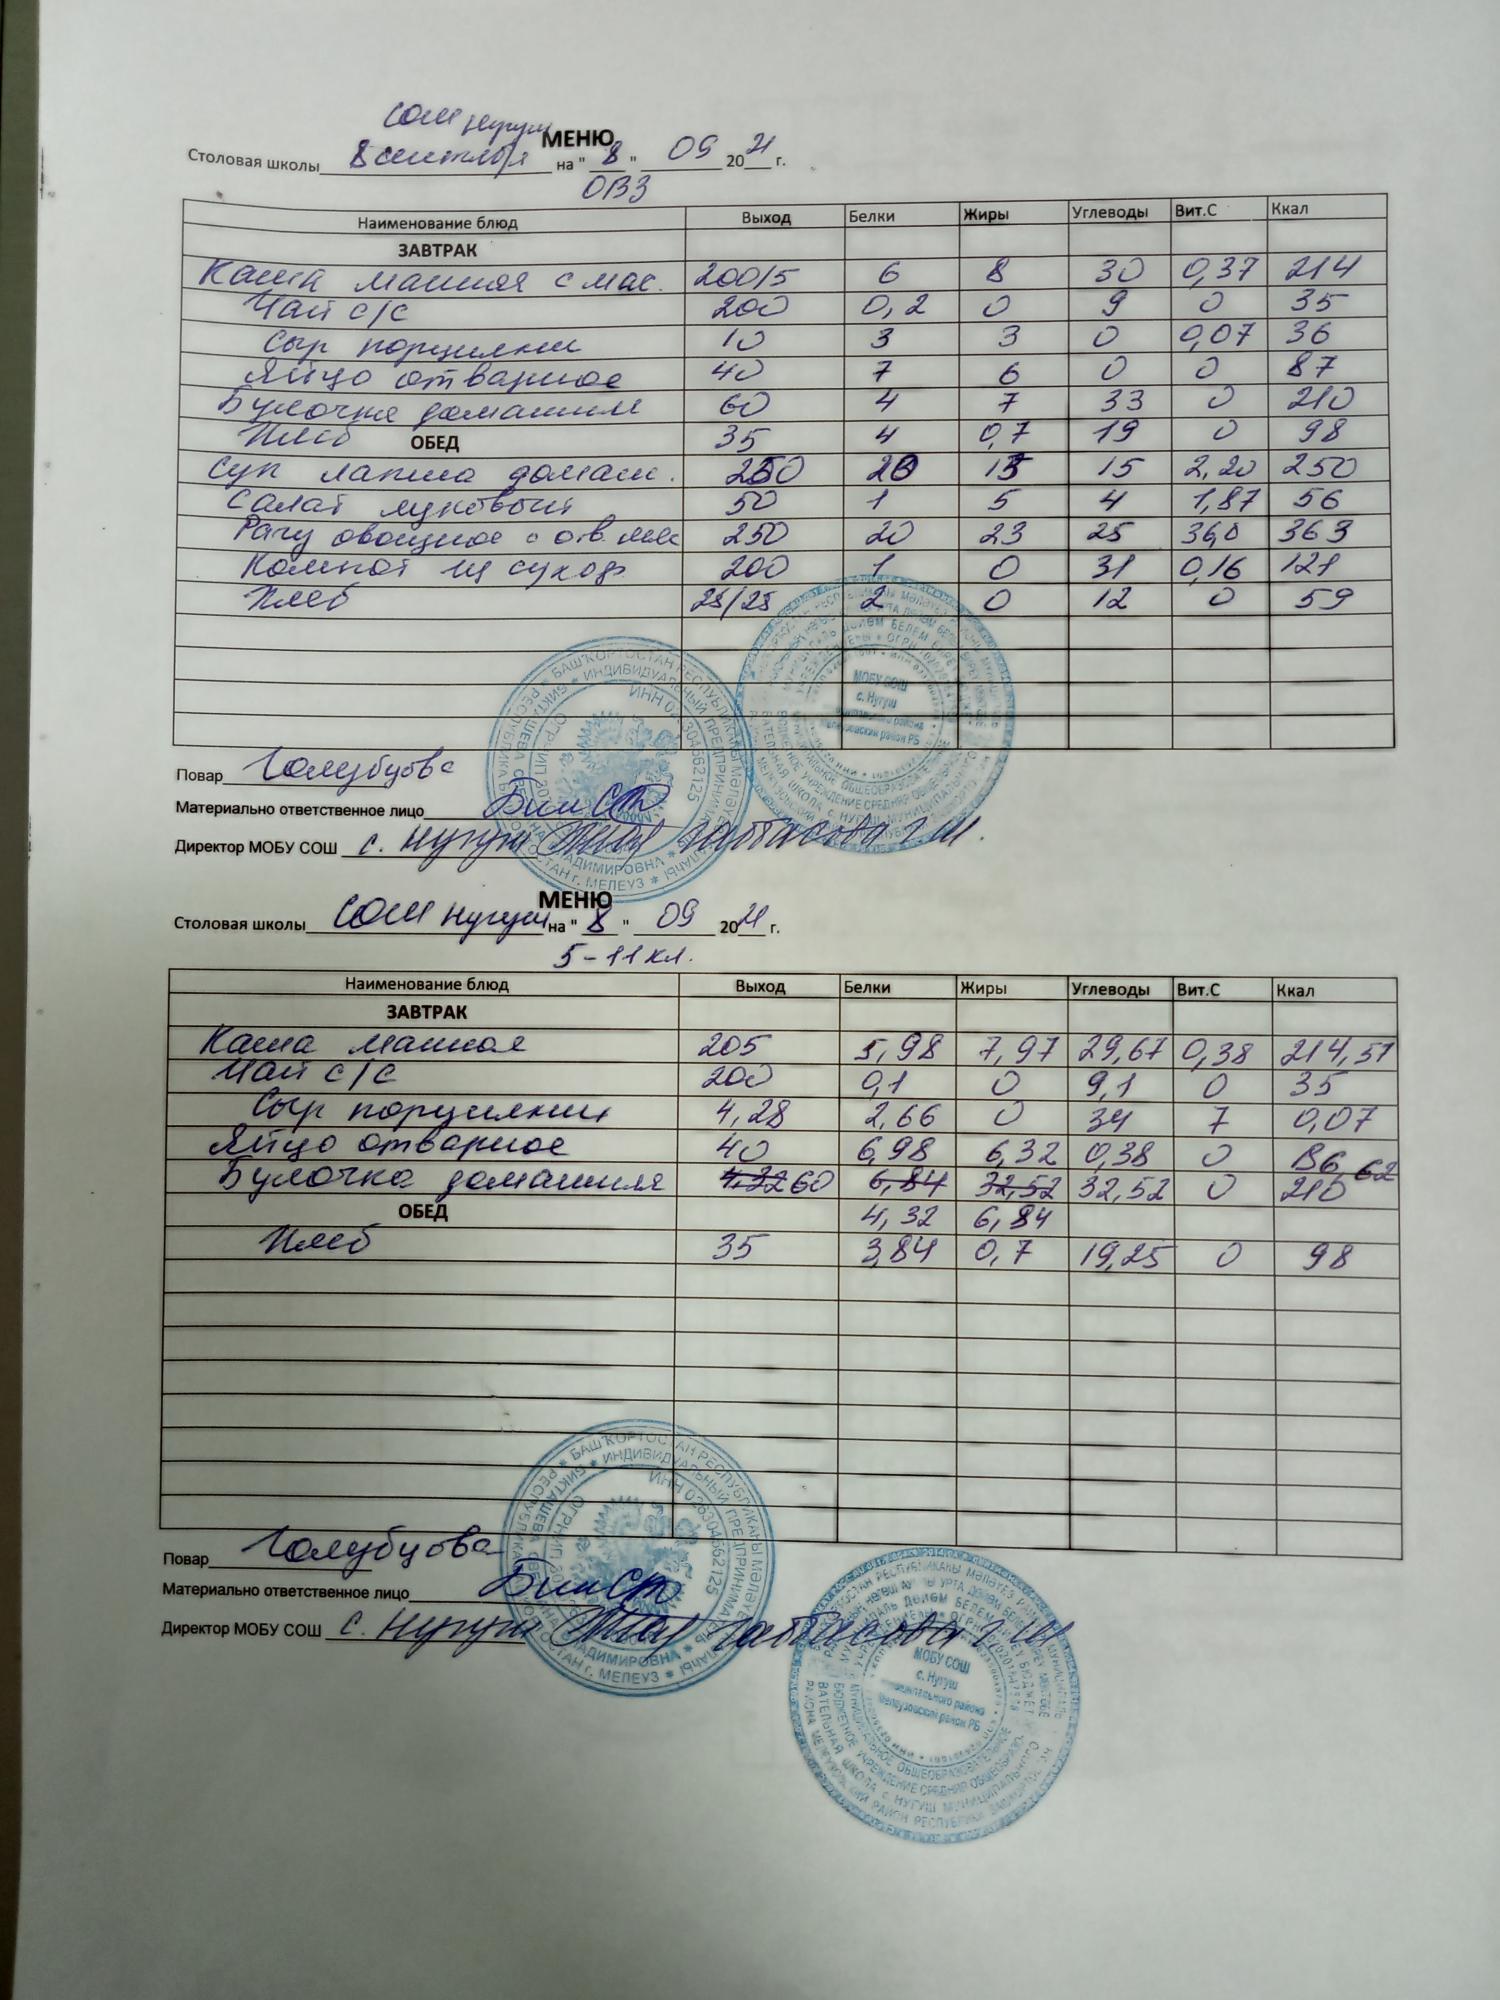 СОШ Нугуш
МЕНЮ
Столовая школы 8 сентября на " 8 " 09 2021 г.
ОВЗ
Наименование блюд Выход Белки Жиры Углеводы Вит.С Ккал
ЗАВТРАК
Каша манная с мас. 200/5 6 8 30 0,37 214
Чай с/с 200 0,2 0 9 0 35
Сыр порциянни 10 3 3 0 0,07 36
Яйцо отварное 40 7 6 0 0 87
Булочка домашняя 60 4 7 33 0 210
Хлеб ОБЕД 35 4 0,7 19 0 98
Суп лапша домаш. 250 20 15 15 2,20 250
Салат луковый 50 1 5 4 1,87 56
Рагу овощное с отв. мяс 250 20 23 25 36,0 363
Компот из сухоф 200 1 0 31 0,16 121
Хлеб 25/25 2 0 12 0 59
Повар Голубцова
Материально ответственное лицо
Директор МОБУ СОШ с. Нугуш Гаттасова Г.И.
БАШҠОРТОСТАН РЕСПУБЛИКАҺЫ
ИНДИВИДУАЛЬНЫЙ ПРЕДПРИНИМАТЕЛЬ
ИНН 026304662125
г. МЕЛЕУЗ
МОБУ СОШ
с. Нугуш
муниципального района
Мелеузовский район РБ
МЕНЮ
Столовая школы СОШ Нугуш на " 8 " 09 2021 г.
5-11 кл.
Наименование блюд Выход Белки Жиры Углеводы Вит.С Ккал
ЗАВТРАК
Каша манная 205 5,98 7,97 29,67 0,38 214,51
Чай с/с 200 0,1 0 9,1 0 35
Сыр порциянни 4,28 2,66 0 34 7 0,07
Яйцо отварное 40 6,98 6,32 0,38 0 86,62
Булочка домашняя 4,32 60 6,84 32,52 32,52 0 210
ОБЕД 4,32 6,84
Хлеб 35 3,84 0,7 19,25 0 98
Повар Голубцова
Материально ответственное лицо
Директор МОБУ СОШ с. Нугуш Гаттасова Г.И.
БАШҠОРТОСТАН РЕСПУБЛИКАҺЫ
ИНДИВИДУАЛЬНЫЙ ПРЕДПРИНИМАТЕЛЬ
ИНН 026304662125
г. МЕЛЕУЗ
МОБУ СОШ
с. Нугуш
муниципального района
Мелеузовский район РБ